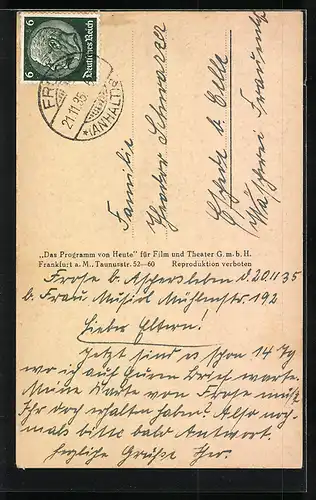 6
Deutsches Reich
6
FRO
21.11.35
*(ANHALT)a
Familie
Theodor Schwarzer
Eschede b. Celle
„Das Programm von Heute" für Film und Theater G. m. b. H.
Frankfurt a. M., Taunusstr. 52—60 Reproduktion verboten
Frose b. Aschersleben d. 20.11.35
b. Frau Mühlenstr. 192
Lieber Eltern!
Jetzt sind es schon 14 Tg
wo ich auf Euren Brief warte.
Meine Karte von Frose müßt
Ihr doch erhalten haben. Also noch-
mals bitte bald Antwort.
herzliche Grüße